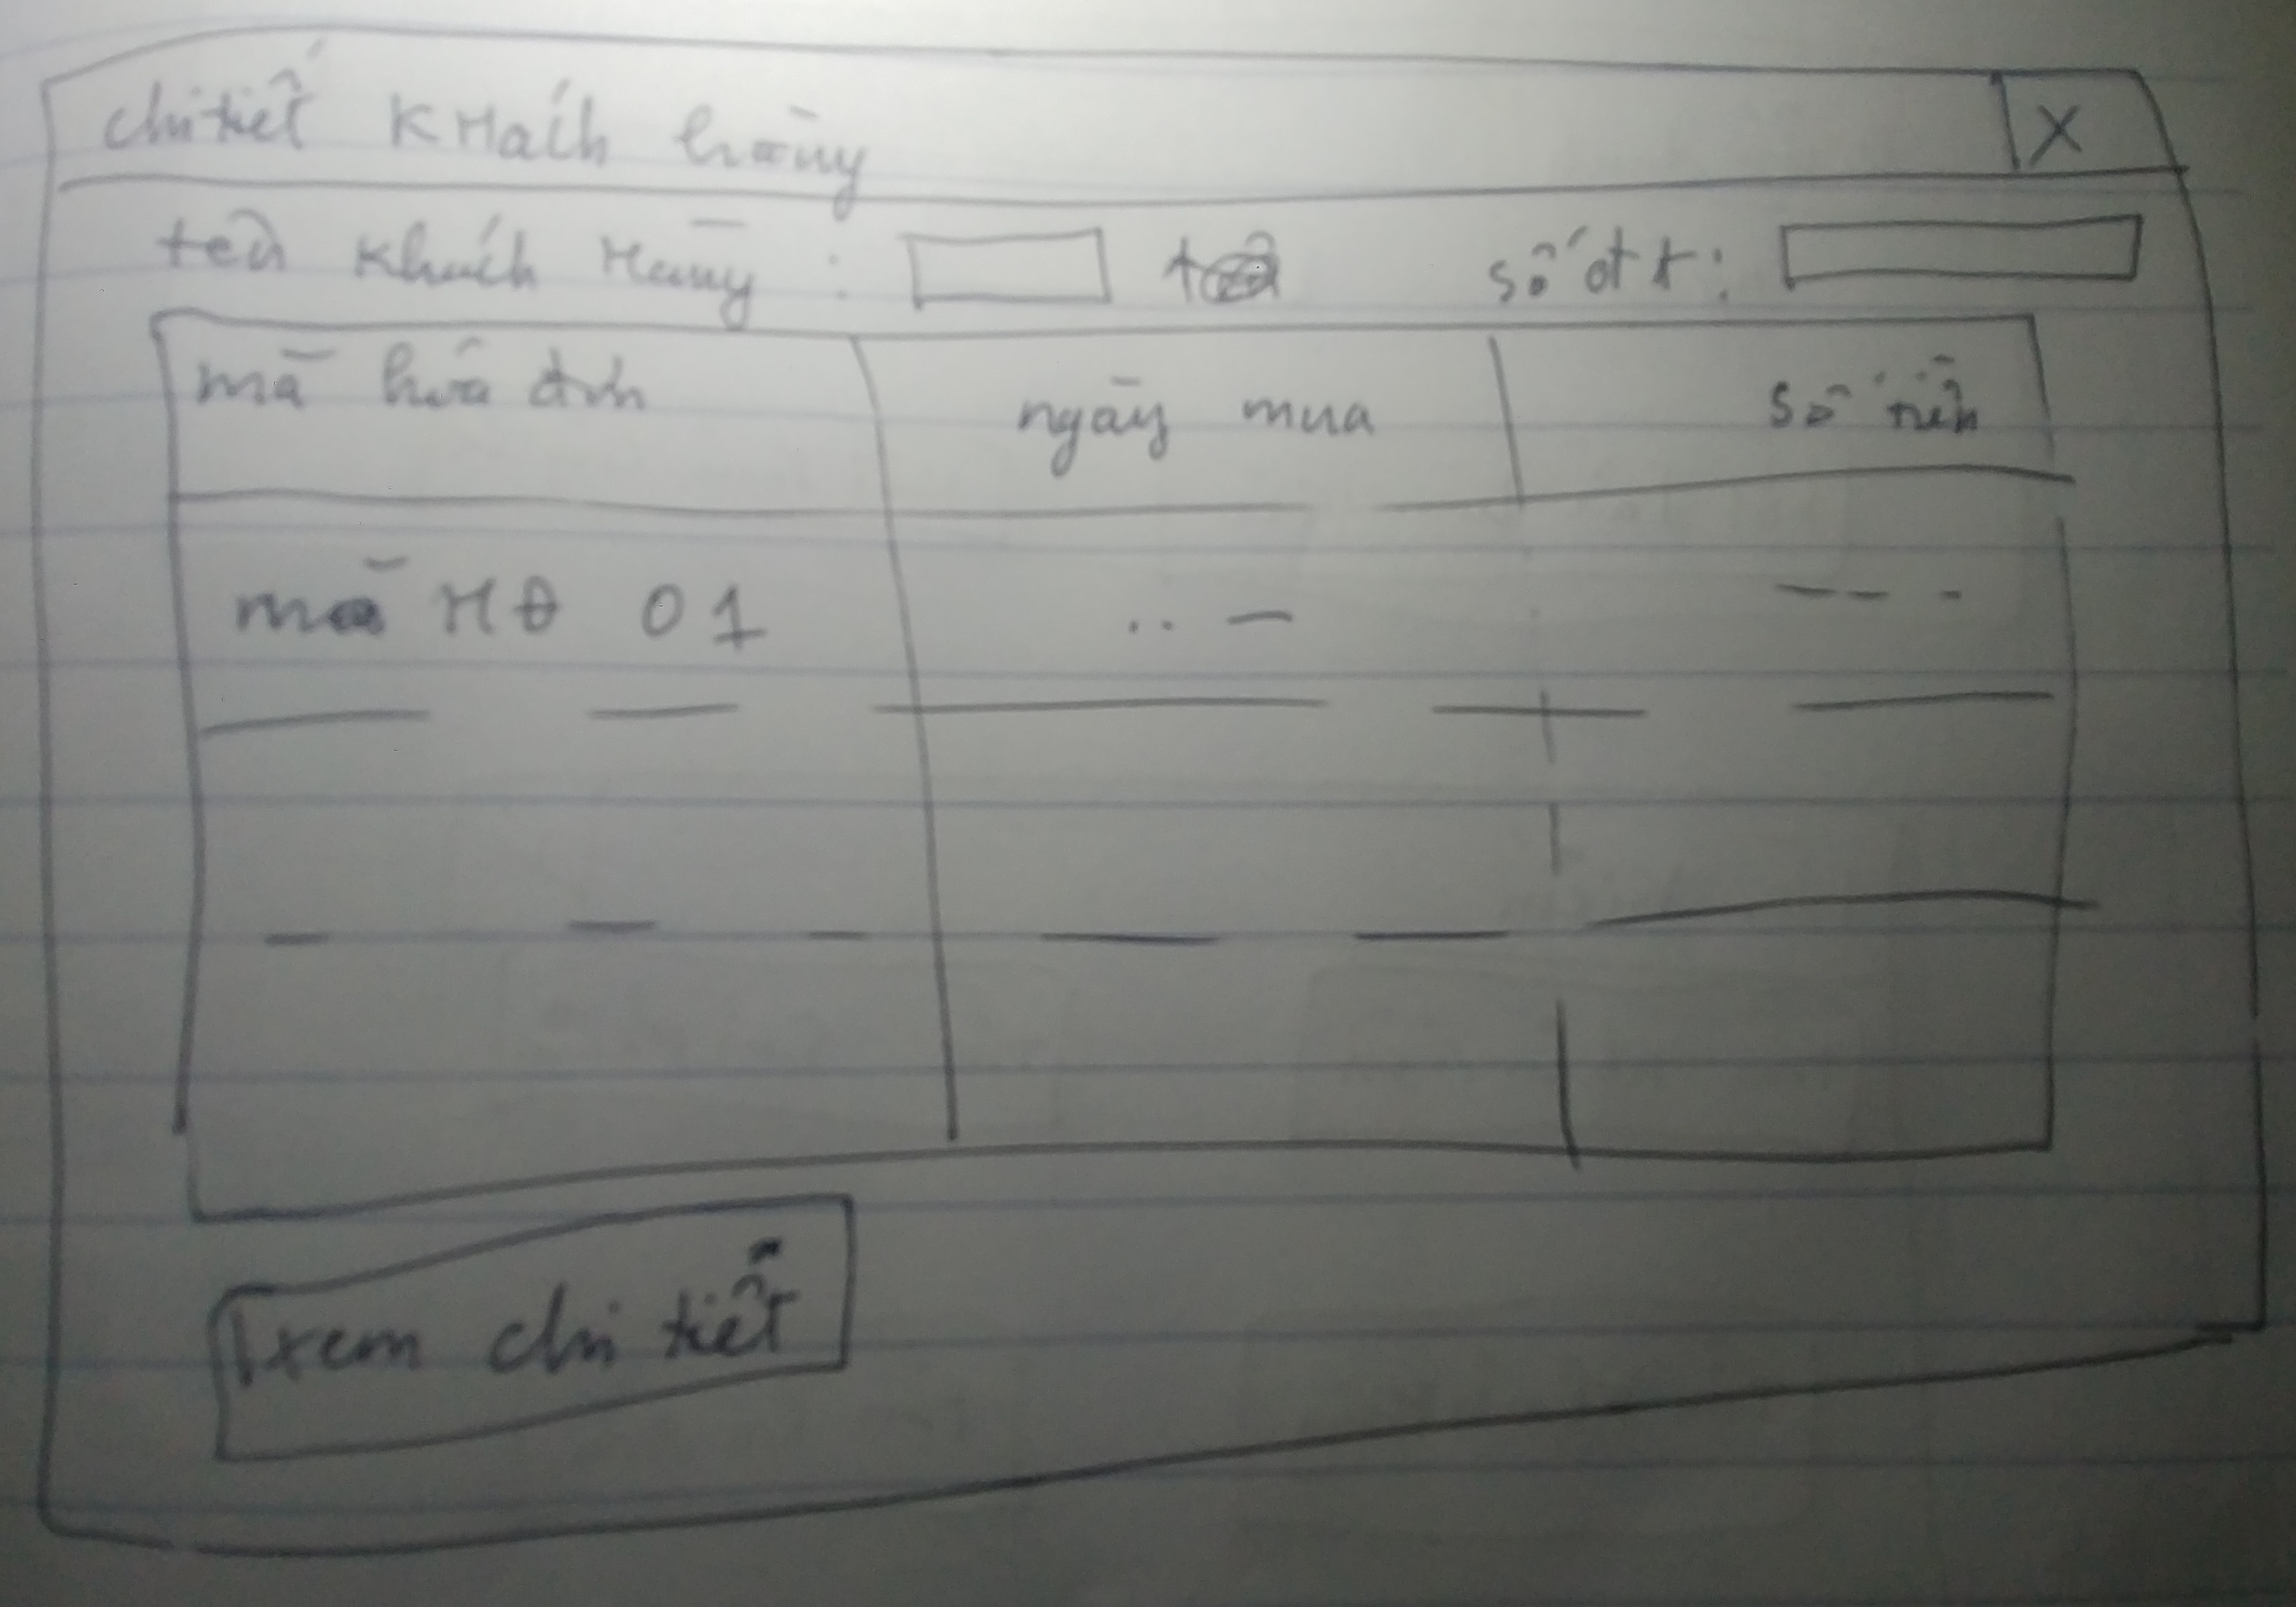 chi tiết KHách hàng X
tên khách Hàng : số đt :
mã hoá đơn ngày mua số tiền
mã HĐ 01
xem chi tiết